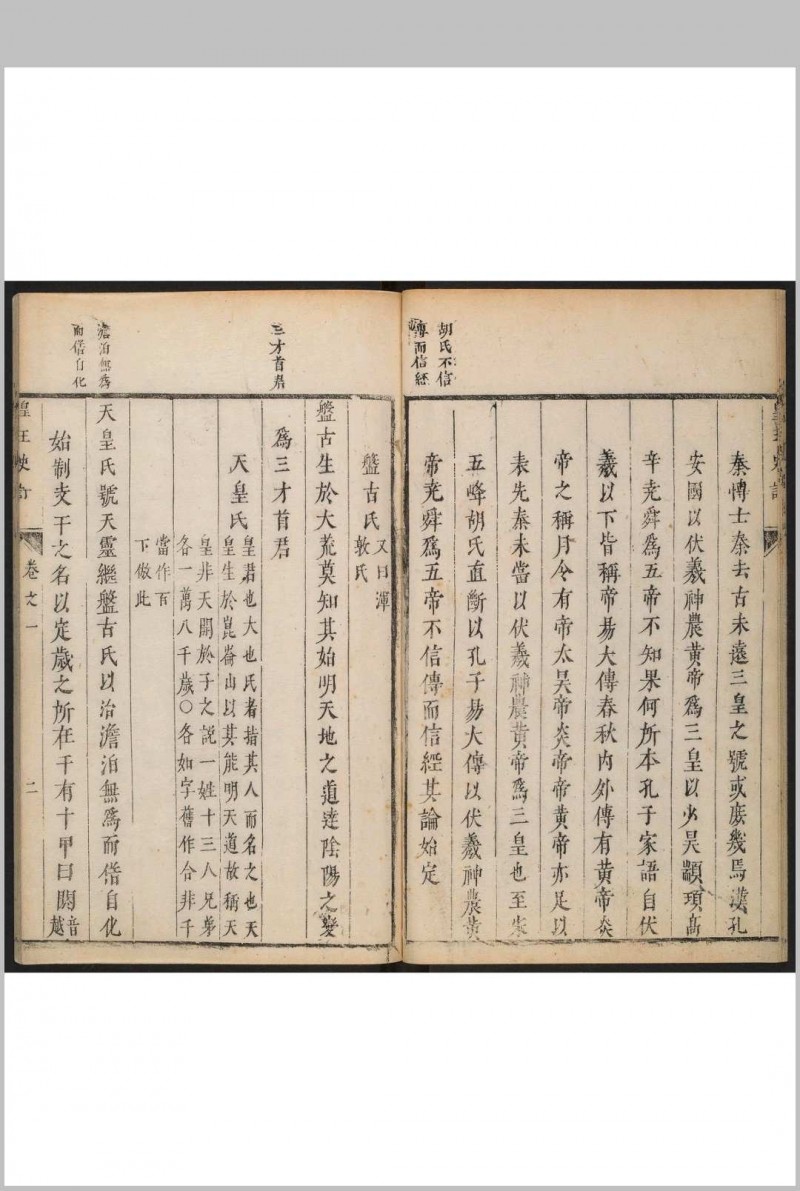 胡氏不信
傳而信經
秦博士秦去古未遠三皇之號或庶幾焉漢孔
安國以伏羲神農黃帝為三皇以少昊顓頊高
辛堯舜為五帝不知果何所本孔子家語自伏
羲以下皆稱帝易大傳春秋內外傳有黃帝炎
帝之稱月令有帝太昊帝炎帝帝黃帝亦足以
表先秦未嘗以伏羲神農黃帝為三皇也至宋
五峰胡氏直斷以孔子易大傳以伏羲神農黃
帝堯舜為五帝不信傳而信經其論始定
三才首君
澹泊無為
而俗自化
盤古氏
又曰渾
敦氏
盤古生於大荒莫知其始明天地之道達陰陽之變
為三才首君
天皇氏
皇君也大也氏者指其人而名之也天
皇生於崑崙山以其能明天道故稱天
皇非天開於子之說一姓十三人兄弟
各一萬八千歲○各如字舊作合非千
當作百
下倣此
天皇氏號天靈繼盤古氏以治澹泊無為而俗自化
始制支干之名以定歲之所在干有十甲曰閼
音
越
卷之一
二